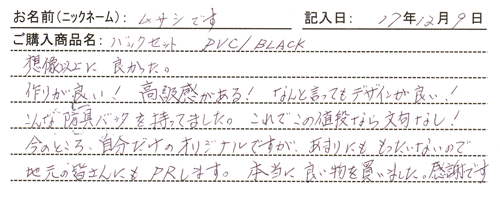 お名前(ニックネーム): ムサシです 記入日: 17年12月9日
ご購入商品名: バックセット PVC/BLACK
想像以上に良かった。
作りが良い! 高級感がある! なんと言ってもデザインが良い!
こんな防具バックを持ってました。これでこの値段なら文句なし!
今のところ、自分だけのオリジナルですが、あまりにももったいないので
地元の皆さんにもPRします。本当に良い物を買いました。感謝です